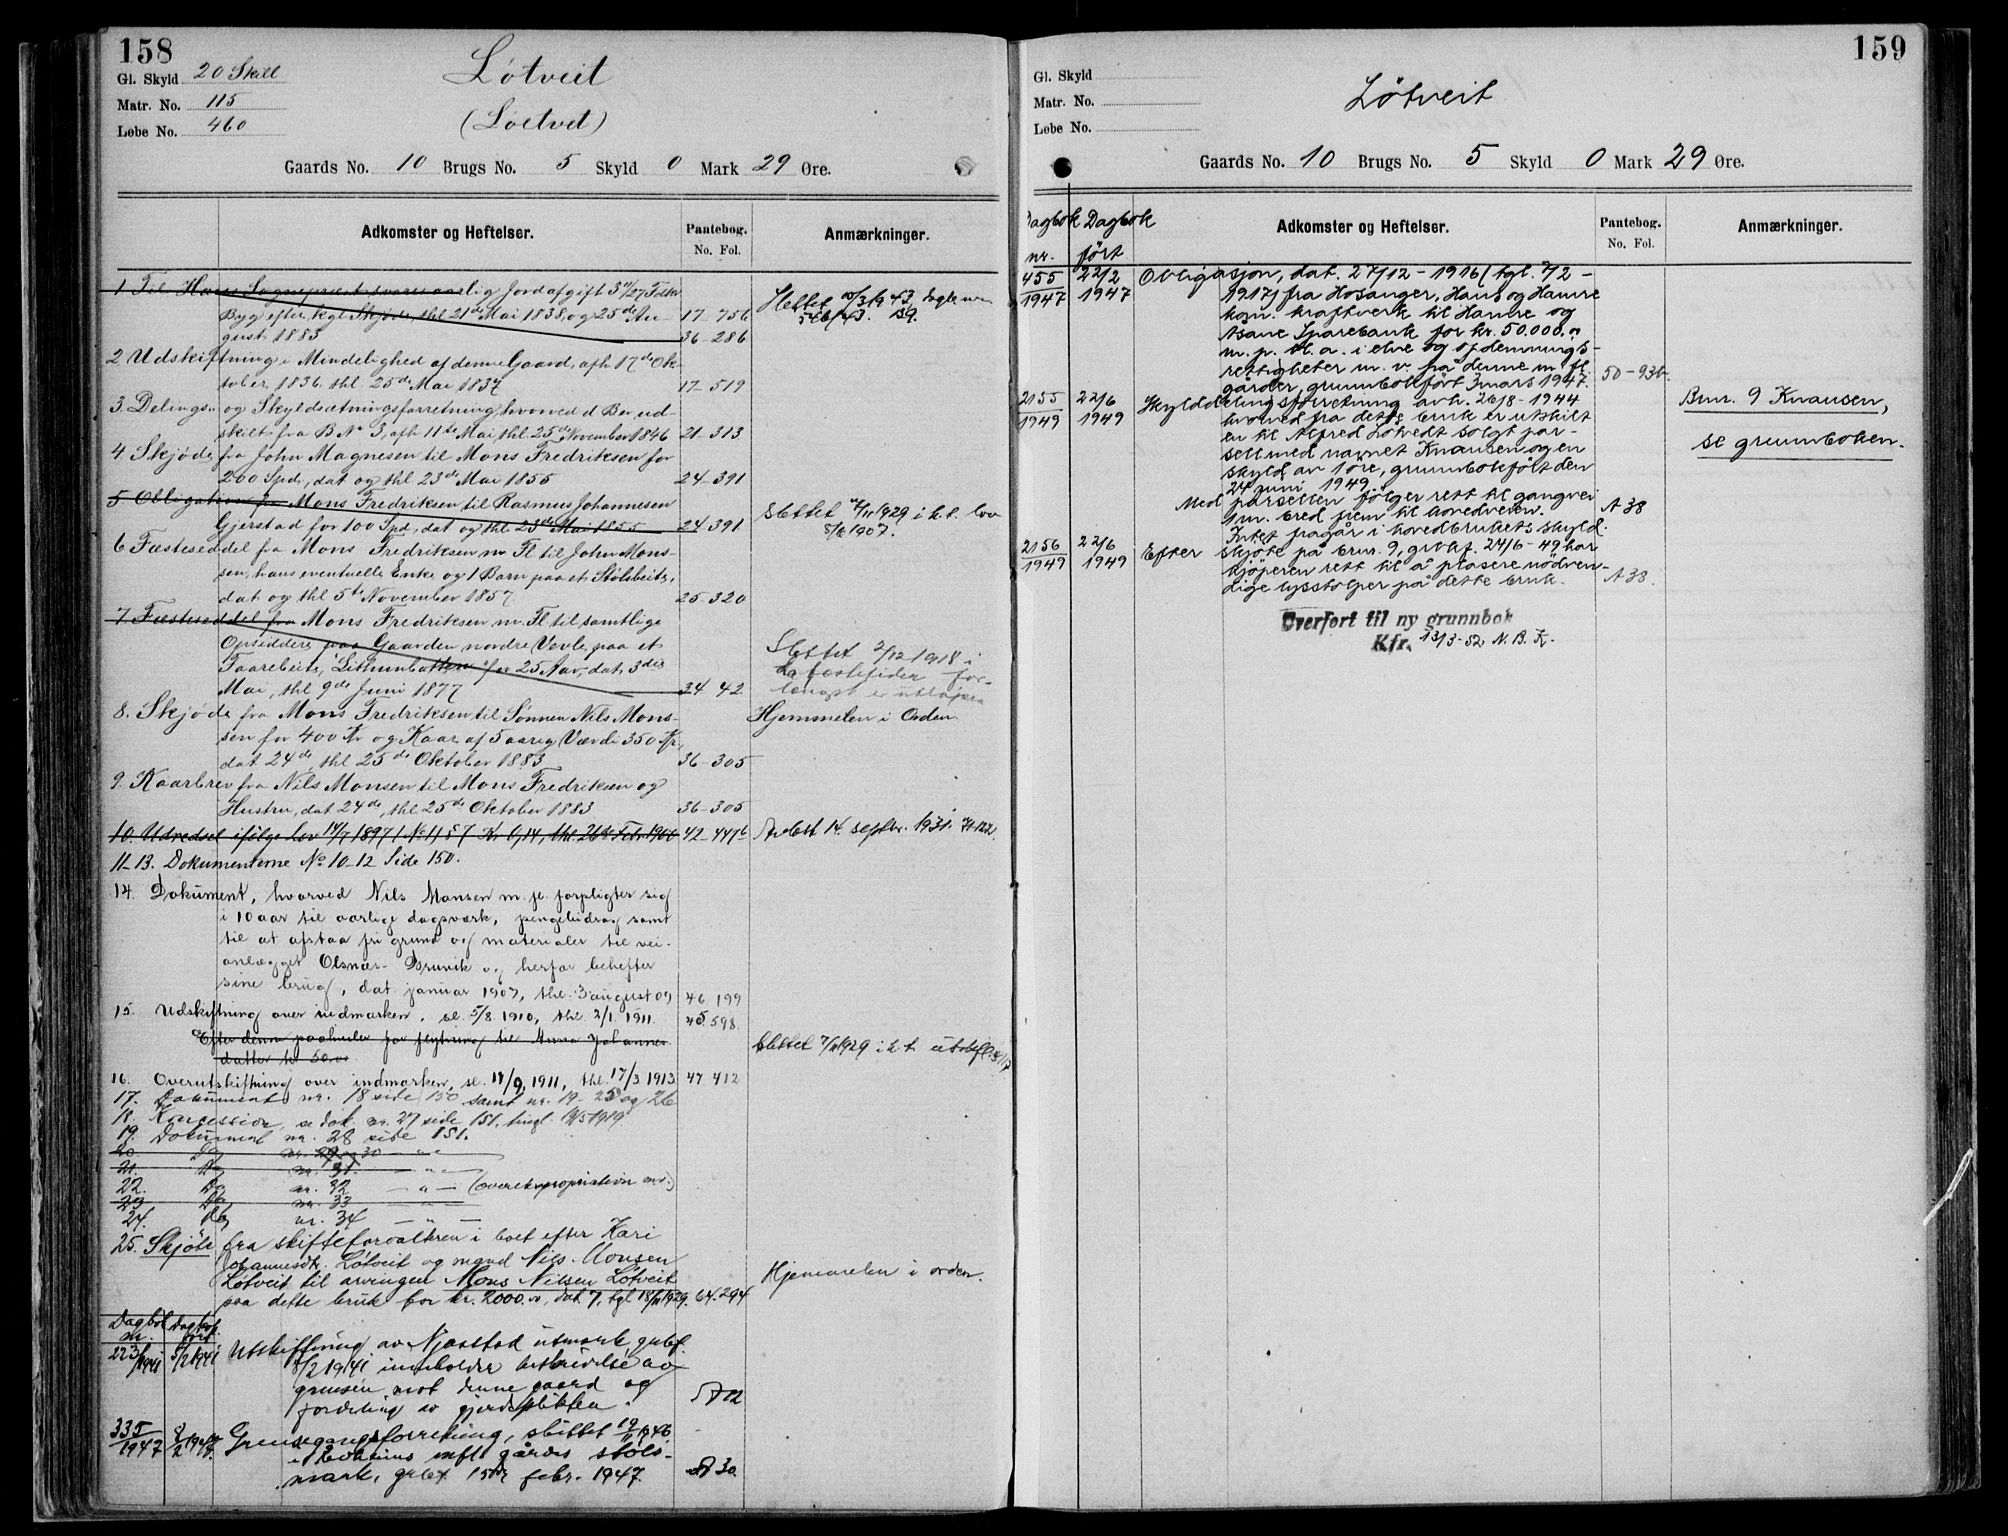 158
Gl. Skyld 20 Skill
Matr. No. 115
Løbe No. 460
Løtveit
(Loetvet)
Gaards No. 10 Brugs No. 5 Skyld 0 Mark 29 Øre.
Adkomster og Heftelser.
Pantebog.
No. Fol.
Anmærkninger.
1 Til Hans Sognepræst svares aarlig Jordafgift
Byg efter kgl. Skjøde, thl 21de Mai 1838, og 25de Au-
gust 1883
17-756
36-286
Slettet
2 Udskiftning i Mindelighed af denne Gaard, afh 17de Ok-
tober, 1836, thl 25de Mai 1837
17-519
3. Delings- og Skyldsætningsforretning, hvorved d Br. ud-
skilt fra B No 3, afh 11te Mai, thl 25de November 1846
21-313
4. Skjøde fra John Magnesen til Mons Fredriksen for
200 Spd, dat og thl 23de Mai 1855
24-391
5 Obligation fra Mons Fredriksen til Rasmus Johannesen
Gjerstad for 100 Spd, dat og thl 23de Mai 1855
24-391
Slettet 7/11 1929 i h.t. lov
8/6 1907.
6 Fæsteseddel fra Mons Fredriksen m Fl til John Mons-
sen, hans eventuelle Enke og 1 Barn paa et Stølsbeite,
dat og thl 5te November 1857
25-320
7. Fæsteseddel fra Mons Fredriksen m. Fl til samtlige
Opsiddere paa Gaarden nordre Vevle, paa et
Faarebeite, Lithunbotten for 25 Aar, dat. 3die
Mai, thl 9de Juni 1877
34 42
Slettet 2/12 1918 i
da fæstetiden for-
længst er utløpen
8. Skjøde fra Mons Fredriksen til Sønnen Nils Mons-
sen for 400 Kr og Kaar af 5 aarig Værdi 350 Kr,
dat 24de, thl 25de Oktober 1883
36-305
Hjemmelen i Orden.
9. Kaarbrev fra Nils Monsen til Mons Fredriksen og
Hustru, dat 24de, thl 25de Oktober 1883
36-305
10. Udredsel ifølge Lov 14/7 1897 No 1, § 7 Kr 0,14, thl 26de Febr. 1900
42-447b
Avløst 14. septbr. 1931.
11-13. Dokumenterne No 10-12 Side 150.
14. Dokument, hvorved Nils Monsen m. fl. forpligter sig
i 10 aar til aarlige dagsværk, pengebidrag samt
til at afstaa fri grund og materialer til vei-
anlægget Olsnæs-Bruvik og herfor behefter
sine brug, dat. januar 1909, thl. 3 august 09
46 199
15. Udskiftning over indmarken, sl. 5/8 1910, thl. 2/1 1911.
45 598.
Efter denne paahviler for flytning til Anna Johannes
datter kr 50.00
Slettet 7/11 1929 i h.t.
16. Overutskiftning over indmarken, sl. 18/9 1911, thl. 17/3 1913
47 412
17. Dokument nr. 18 side 150 samt nr. 19-25 og 26
18. Koncession, se dok. nr. 27 side 151, tingl. 1919
19. Dokument nr. 28 side 151.
20. Do nr. 29 og 30 — " —
21. Do nr. 31. — " —
22. Do nr. 32 — " — (overekspropriation m.v.)
23 Do nr. 33 — " —
24. Do nr. 34 — " —
25. Skjøte fra skifteforvalteren i boet efter Kari
Johannesdtr. Løtveit og mand Nils Monsen
Løtveit til arvingen Mons Nilsen Løtveit
paa dette bruk for kr. 2000.00, dat 7, tgl 18/11 1929.
64.294
Hjemmelen i orden.
Dagbok
nr.
Dagbok
ført
223/1941
8/2 1941
Utskiftning av Njaastad utmark, grbf.
8/2 1941 inneholder beskrivelse av
grensen mot denne gaard og
fordeling av gjerdeplikten.
A 12
335
1947
8/2 1947
Grensegangsforretning, sluttet 19/11 1946
mfl gårds støls-
mark, grbf. 15de febr. 1947.
A 30.
159
Gl. Skyld
Matr. No.
Løbe No.
Løtveit
Gaards No. 10 Brugs No. 5 Skyld 0 Mark 29 Øre.
Dagbok
nr.
Dagbok
ført
Adkomster og Heftelser.
Pantebog.
No. Fol.
Anmærkninger.
455
1947
22/2
1947
Obligasjon, dat. 27/12-1916 (tgl. 7/2-
1917) fra Hosanger, Haus og Hamre
kom. kraftverk til Hamre og
Åsane Sparebank for kr. 50.000.00
m. p. bl. a. i elve og opdemnings-
rettigheter m. v. på denne m. fl.
gårder, grunnbokført 3 mars 1947.
50-936.
2155
1949
22/6
1949
Skylddelingsforretning avh. 26/8-1944
hvorved fra dette bruk er utskilt
en til Alfred Løtvedt solgt par-
sell med navnet Knausen og en
skyld av 1 øre, grunnbokført den
24 juni 1949.
Med parsellen følger rett til gangvei
1 m. bred frem til hovedveien.
Intet fragår i hovedbrukets skyld.
A 38
Bnr. 9 Knausen,
se grunnboken.
2156
1949
22/6
1949
Efter skjøte på bnr. 9, grbkf. 24/6-49 har
kjøperen rett til å plasere nødven-
dige lysstolper på dette bruk.
A 38.
Overført til ny grunnbok
Kfr. 13/3-52 N. B. K.